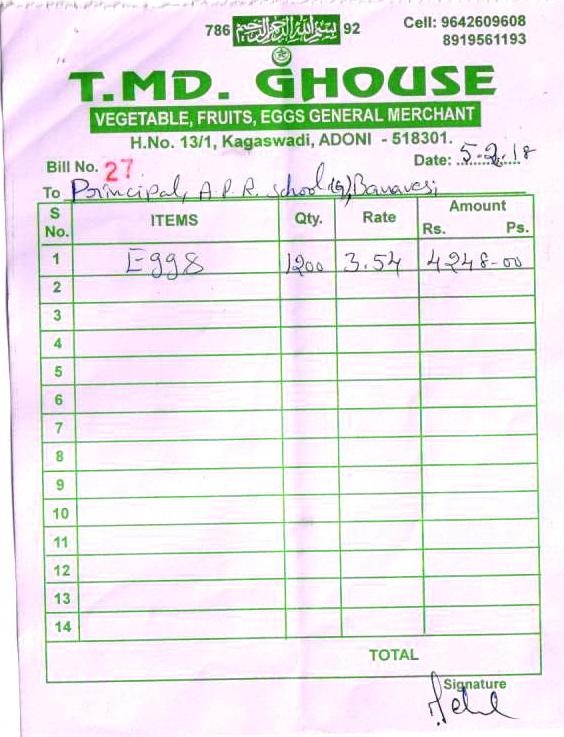 786 بسم الله الرحمن الرحيم 92
Cell: 9642609608
8919561193
T.MD. GHOUSE
VEGETABLE, FRUITS, EGGS GENERAL MERCHANT
H.No. 13/1, Kagaswadi, ADONI - 518301.
Bill No. 27 Date: 5-2-18
To Principal, A.P.R. School (G), Banavasi
S No. ITEMS Qty. Rate Amount
Rs. Ps.
1 Eggs 1200 3.54 4248-00
2
3
4
5
6
7
8
9
10
11
12
13
14
TOTAL
Signature